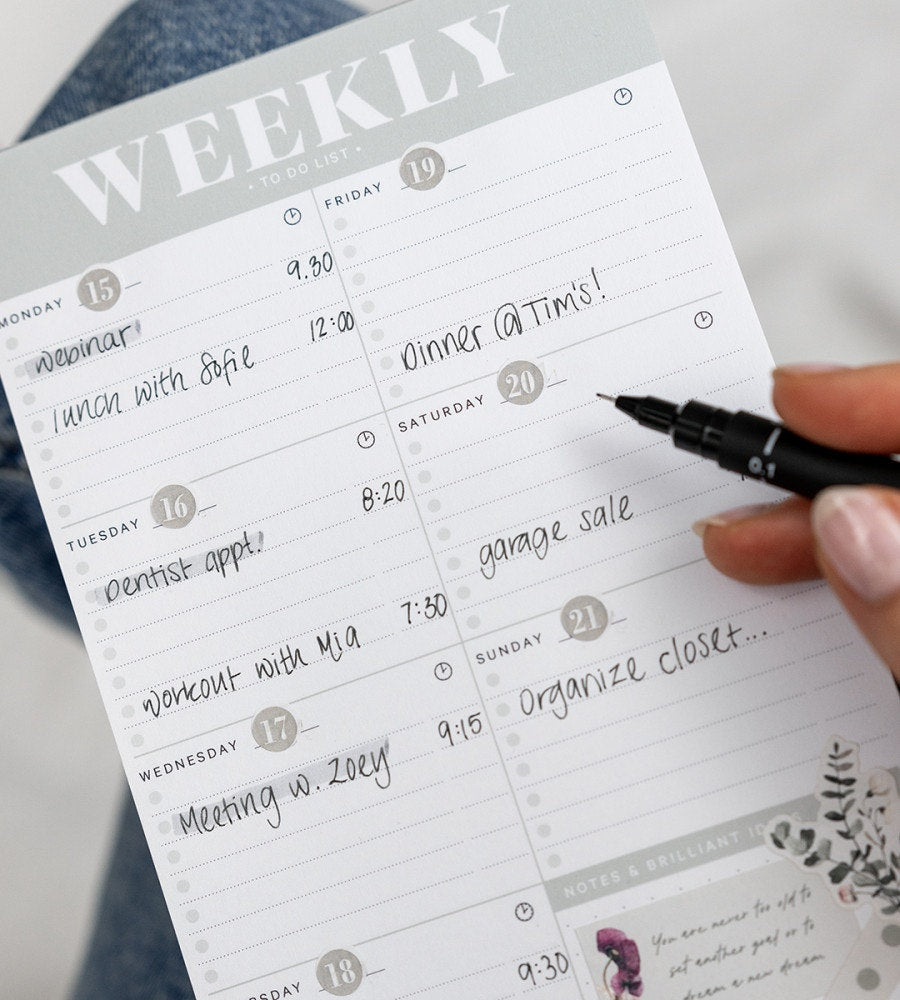 WEEKLY
• TO DO LIST •
MONDAY 15
webinar! 9.30
lunch with Sofie 12:00
TUESDAY 16
Dentist appt! 8:20
workout with Mia 7:30
WEDNESDAY 17
Meeting w. Zoey 9:15
RSDAY 18
9:30
FRIDAY 19
Dinner @Tim's!
SATURDAY 20
garage sale
SUNDAY 21
Organize closet...
NOTES & BRILLIANT
You are never too old to
set another goal or to
dream a new dream
0.1